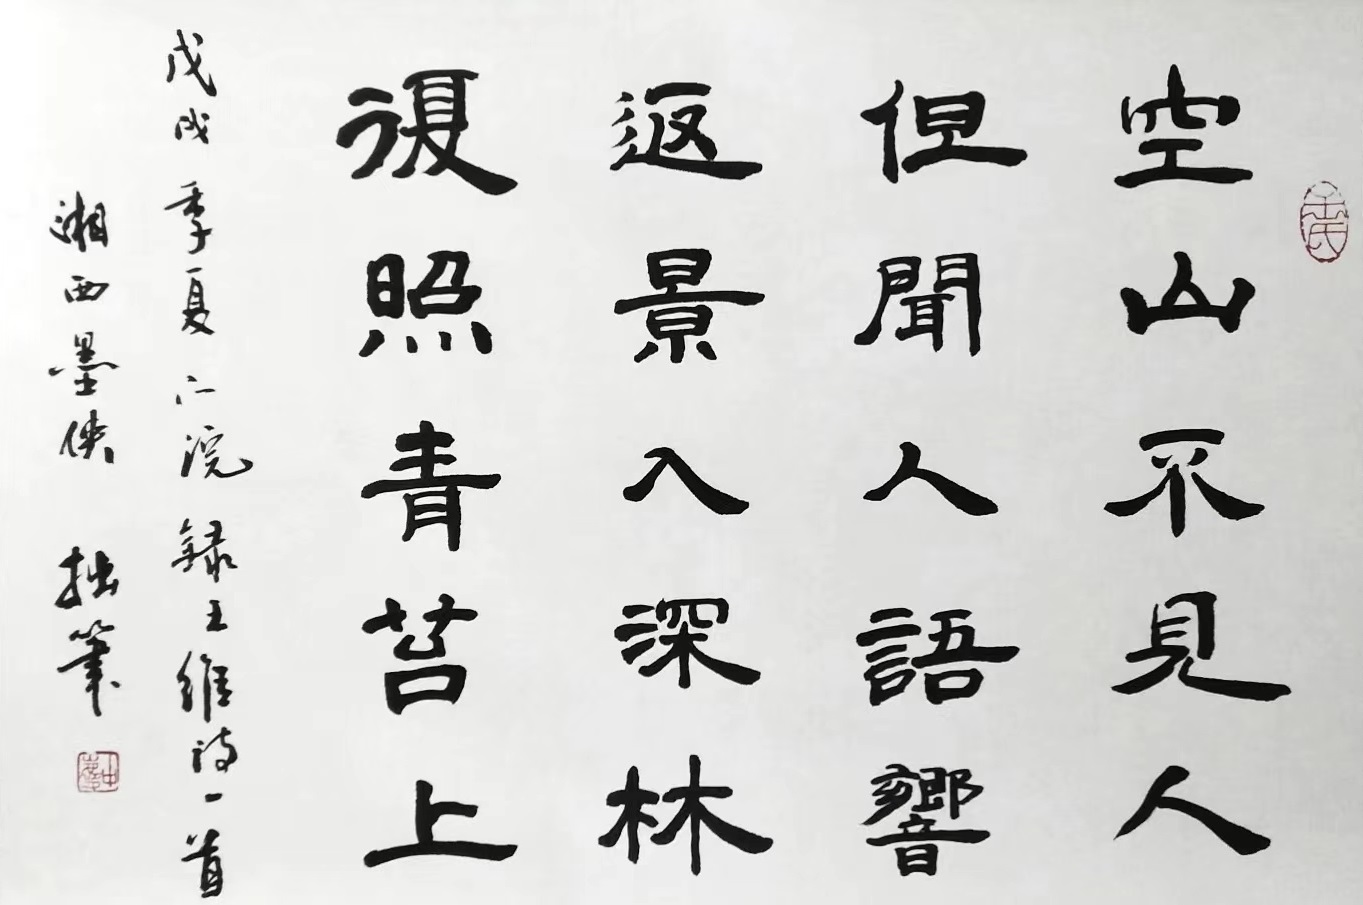 空山不見人
但聞人語響
返景入深林
復照青苔上
戊戌季夏仁浣錄王維詩一首
湘西墨俠 拙筆
王氏